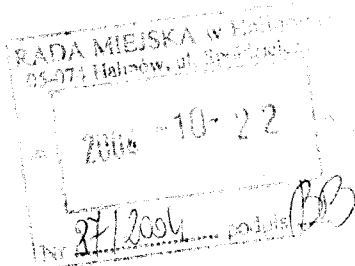 RADA MIEJSKA w Halinowie
05-074 Halinów, ul. Spółdzielcza
2004 -10- 22
Nr 87/2004 podpis BB